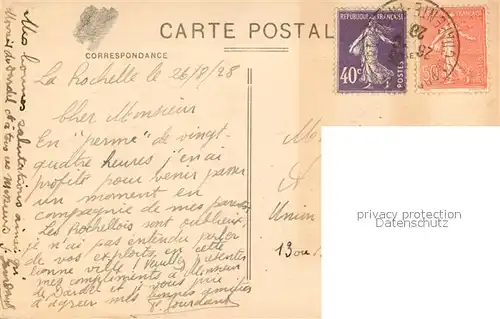 CARTE POSTALE
CORRESPONDANCE
La Rochelle le 26/8/28
Cher Monsieur
En "perme" de vingt-
quatre heures j'en ai
profité pour venir passer
un moment en
compagnie de mes parents
Les Rochellois sont oublieux
je n'ai pas entendu parler
de vos exploits, en cette
bonne ville ! Veuillez présenter
mes compliments à Monsieur
de Dardel et je vous prie
d'agréer mes bonnes amitiés
P. Jourdan
Mes bonnes salutations ainsi qu'à
Union
13 ou
REPUBLIQUE FRANÇAISE
40c
POSTES
50c
privacy protection
copyright protection
copyright protection
privacy protection